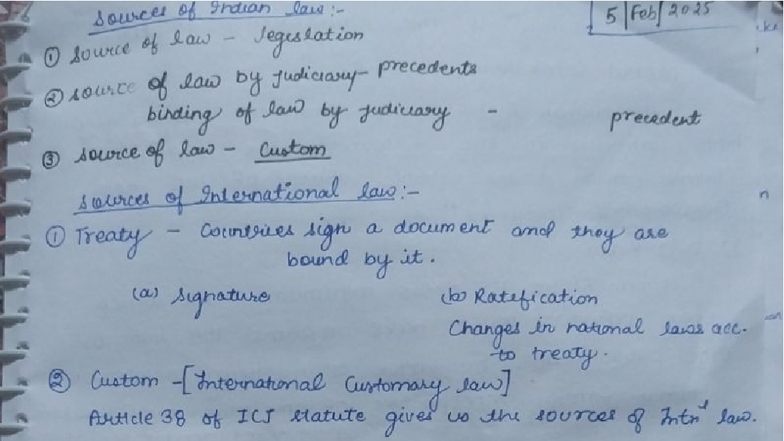 Sources of Indian law:-
5 | Feb | 2025
① Source of law - legislation
② source of law by judiciary - precedents
binding of law by judiciary - precedent
③ source of law - Custom
sources of International law:-
① Treaty - Countries sign a document and they are
bound by it.
(a) signature (b) Ratification
Changes in national laws acc.
to treaty.
② Custom -[International Customary law]
Article 38 of ICJ statute gives us the sources of Intnl law.